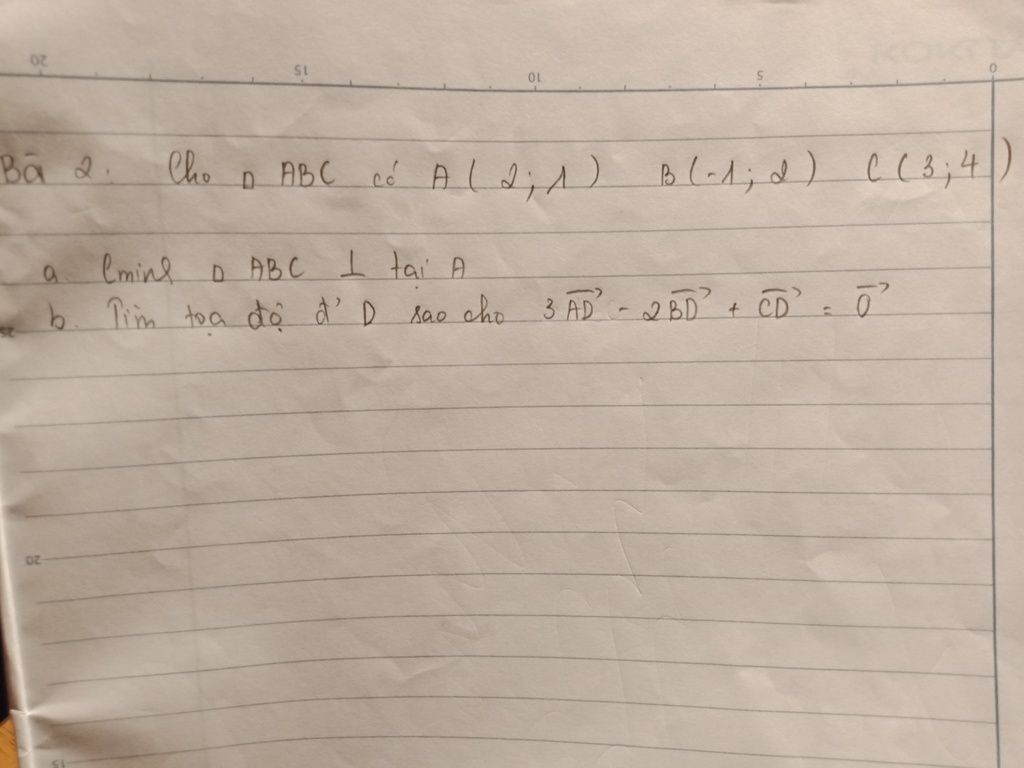 20 15 10 5 0
Bà 2. Cho △ ABC có A(2;1) B(-1;2) C(3;4)
a. Cminh △ ABC ⊥ tại A
b. Tìm tọa độ đ' D sao cho 3AD⃗ - 2BD⃗ + CD⃗ = 0⃗
20
15